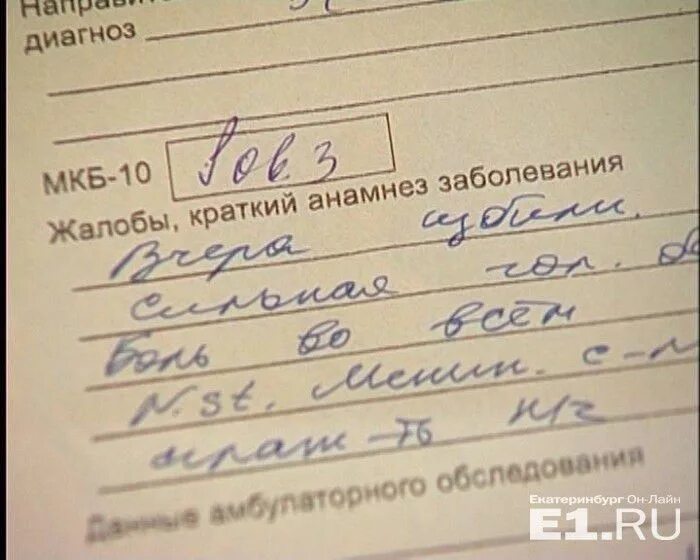 Направит
диагноз
МКБ-10 S06.3
Жалобы, краткий анамнез заболевания
Вчера избили.
Сильная гол.
боль во всём
N.st. Менин. с-м
Данные амбулаторного обследования
Екатеринбург Он-Лайн
E1.RU